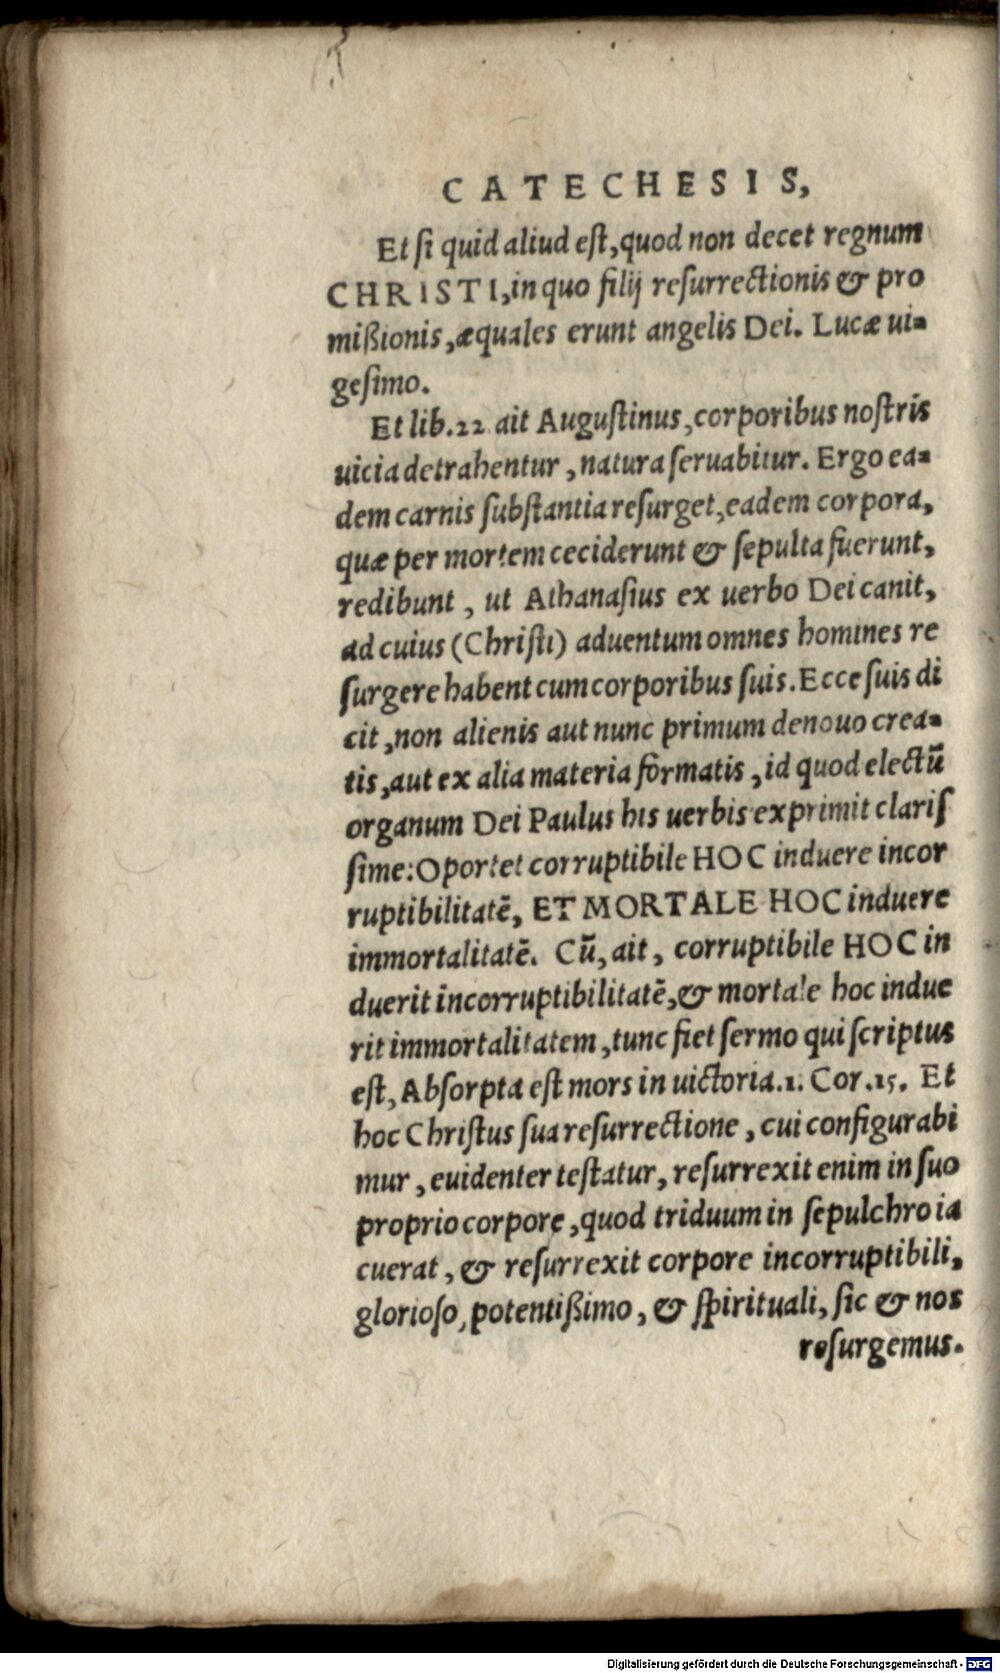 CATECHESIS,
Et ſi quid aliud eſt, quod non decet regnum
CHRISTI, in quo filij reſurrectionis & pro
mißionis, æquales erunt angelis Dei. Lucæ ui-
geſimo.
Et lib. 22 ait Auguſtinus, corporibus noſtris
uicia detrahentur, natura ſeruabitur. Ergo ea-
dem carnis ſubſtantia reſurget, eadem corpora,
quæ per mortem ceciderunt & ſepulta fuerunt,
redibunt, ut Athanaſius ex uerbo Dei canit,
ad cuius (Chriſti) aduentum omnes homines re
ſurgere habent cum corporibus ſuis. Ecce ſuis di
cit, non alienis aut nunc primum denouo crea-
tis, aut ex alia materia formatis, id quod electū
organum Dei Paulus his uerbis exprimit clariſ
ſime: Oportet corruptibile HOC induere incor
ruptibilitatē, ET MORTALE HOC induere
immortalitatē. Cū, ait, corruptibile HOC in
duerit incorruptibilitatē, & mortale hoc indue
rit immortalitatem, tunc fiet ſermo qui ſcriptus
eſt, Abſorpta eſt mors in uictoria. 1. Cor. 15. Et
hoc Chriſtus ſua reſurrectione, cui configurabi
mur, euidenter teſtatur, reſurrexit enim in ſuo
proprio corpore, quod triduum in ſepulchro ia
cuerat, & reſurrexit corpore incorruptibili,
glorioſo, potentißimo, & ſpirituali, ſic & nos
reſurgemus.
Digitalisierung gefördert durch die Deutsche Forschungsgemeinschaft - DFG